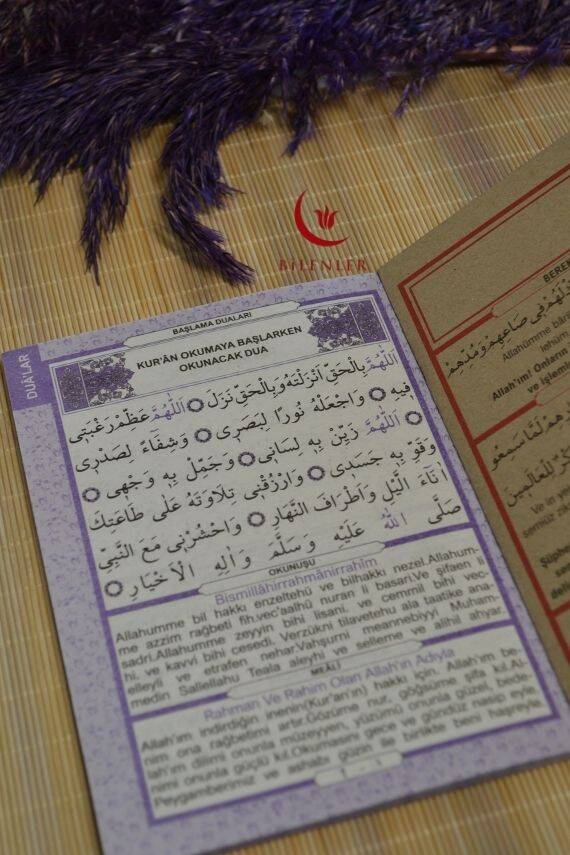 BiLENLER
DUÂ'LAR
BAŞLAMA DUALARI
KUR'ÂN OKUMAYA BAŞLARKEN
OKUNACAK DUA
اَللّٰهُمَّ بِالْحَقِّ اَنْزَلْتَهُ وَبِالْحَقِّ نَزَلَ ۞ اَللّٰهُمَّ عَظِّمْ رَغْبَتِى
فِيهِ ۞ وَاجْعَلْهُ نُورًا لِبَصَرِى ۞ وَشِفَاءً لِصَدْرِى
۞ اَللّٰهُمَّ زَيِّنْ بِهِ لِسَانِى ۞ وَجَمِّلْ بِهِ وَجْهِى ۞
وَقَوِّ بِهِ جَسَدِى ۞ وَارْزُقْنِى تِلَاوَتَهُ عَلٰى طَاعَتِكَ
اٰنَاءَ الَّيْلِ وَاَطْرَافَ النَّهَارِ ۞ وَاحْشُرْنِى مَعَ النَّبِيِّ
صَلَّى اللّٰهُ عَلَيْهِ وَسَلَّمَ وَاٰلِهِ الْاَخْيَارِ ۞
OKUNUŞU
Bismillâhirrahmânirrahîm
Allahumme bil hakkı enzeltehü ve bilhakkı nezel.Allahum-
me azzim rağbeti fih.vec'aalhü nuran li basari.Ve şifaen li
sadri.Allahumme zeyyin bihi lisani. ve cemmil bihi vec-
hi. ve kavvi bihi cesedi. Verzükni tilavetehu ala taatike ana-
elleyli ve etrafen nehar.Vahşurni meannebiyyi Muham-
medin Sallellahu Teala aleyhi ve selleme ve alihil ahyar.
MEÂLİ
Rahman Ve Rahim Olan Allah'ın Adıyla
Allah'ım indirdiğin inenin(Kur'an'ın) hakkı için. Allah'ım be-
nim ona rağbetimi artır.Gözüme nur, göğsüme şifa kıl.Al-
lah'ım dilimi onunla müzeyyen, yüzümü onunla güzel, bede-
nimi onunla güçlü kıl.Okumasını gece ve gündüz nasip eyle.
Peygamberimiz ve ashabı güzin ile birlikte beni haşreyle.
BEREK
Allahümme bâ
Allah'ım! Onların
ve işlemi
لِلْعَالَمِينَ
Ve in y